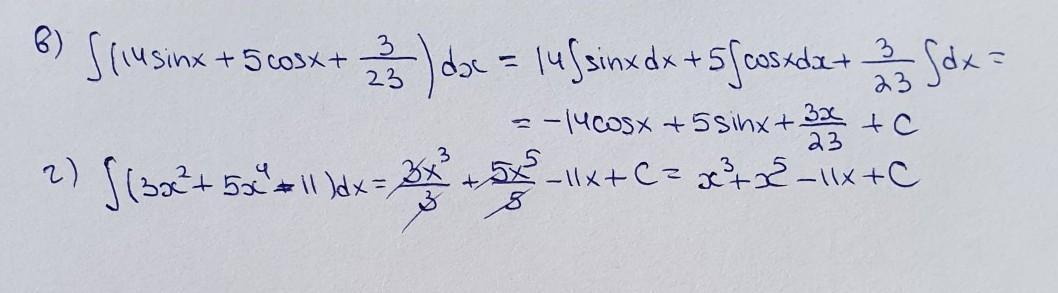 в) ∫(14sinx + 5cosx + 3/23)dx = 14∫sinxdx + 5∫cosxdx + 3/23 ∫dx =
= -14cosx + 5sinx + 3x/23 + C
г) ∫(3x² + 5x⁴ - 11)dx = 3x³/3 + 5x⁵/5 - 11x + C = x³ + x⁵ - 11x + C